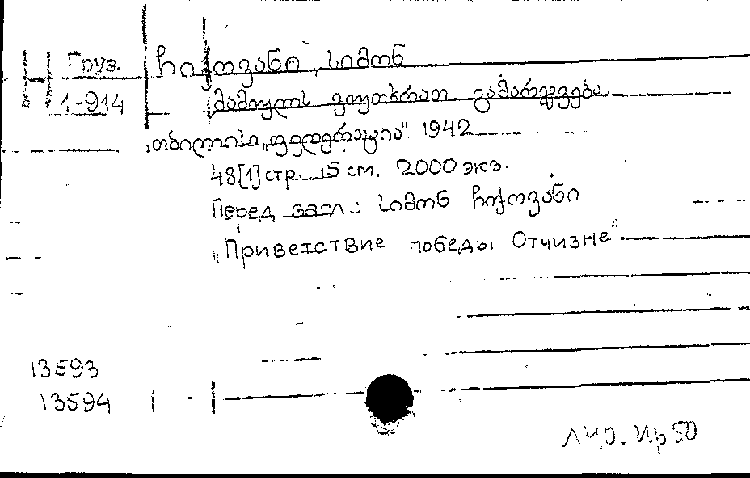 Груз. ჩიქოვანი, სიმონ
1-914 მამულს ვიუთხრათ გამარჯვება
თბილისი, „ფედერაცია“. 1942
48[1] стр. 15 см. 2000 экз.
Перед загл.: სიმონ ჩიქოვანი
„Приветствие победы Отчизне“
13593
13594